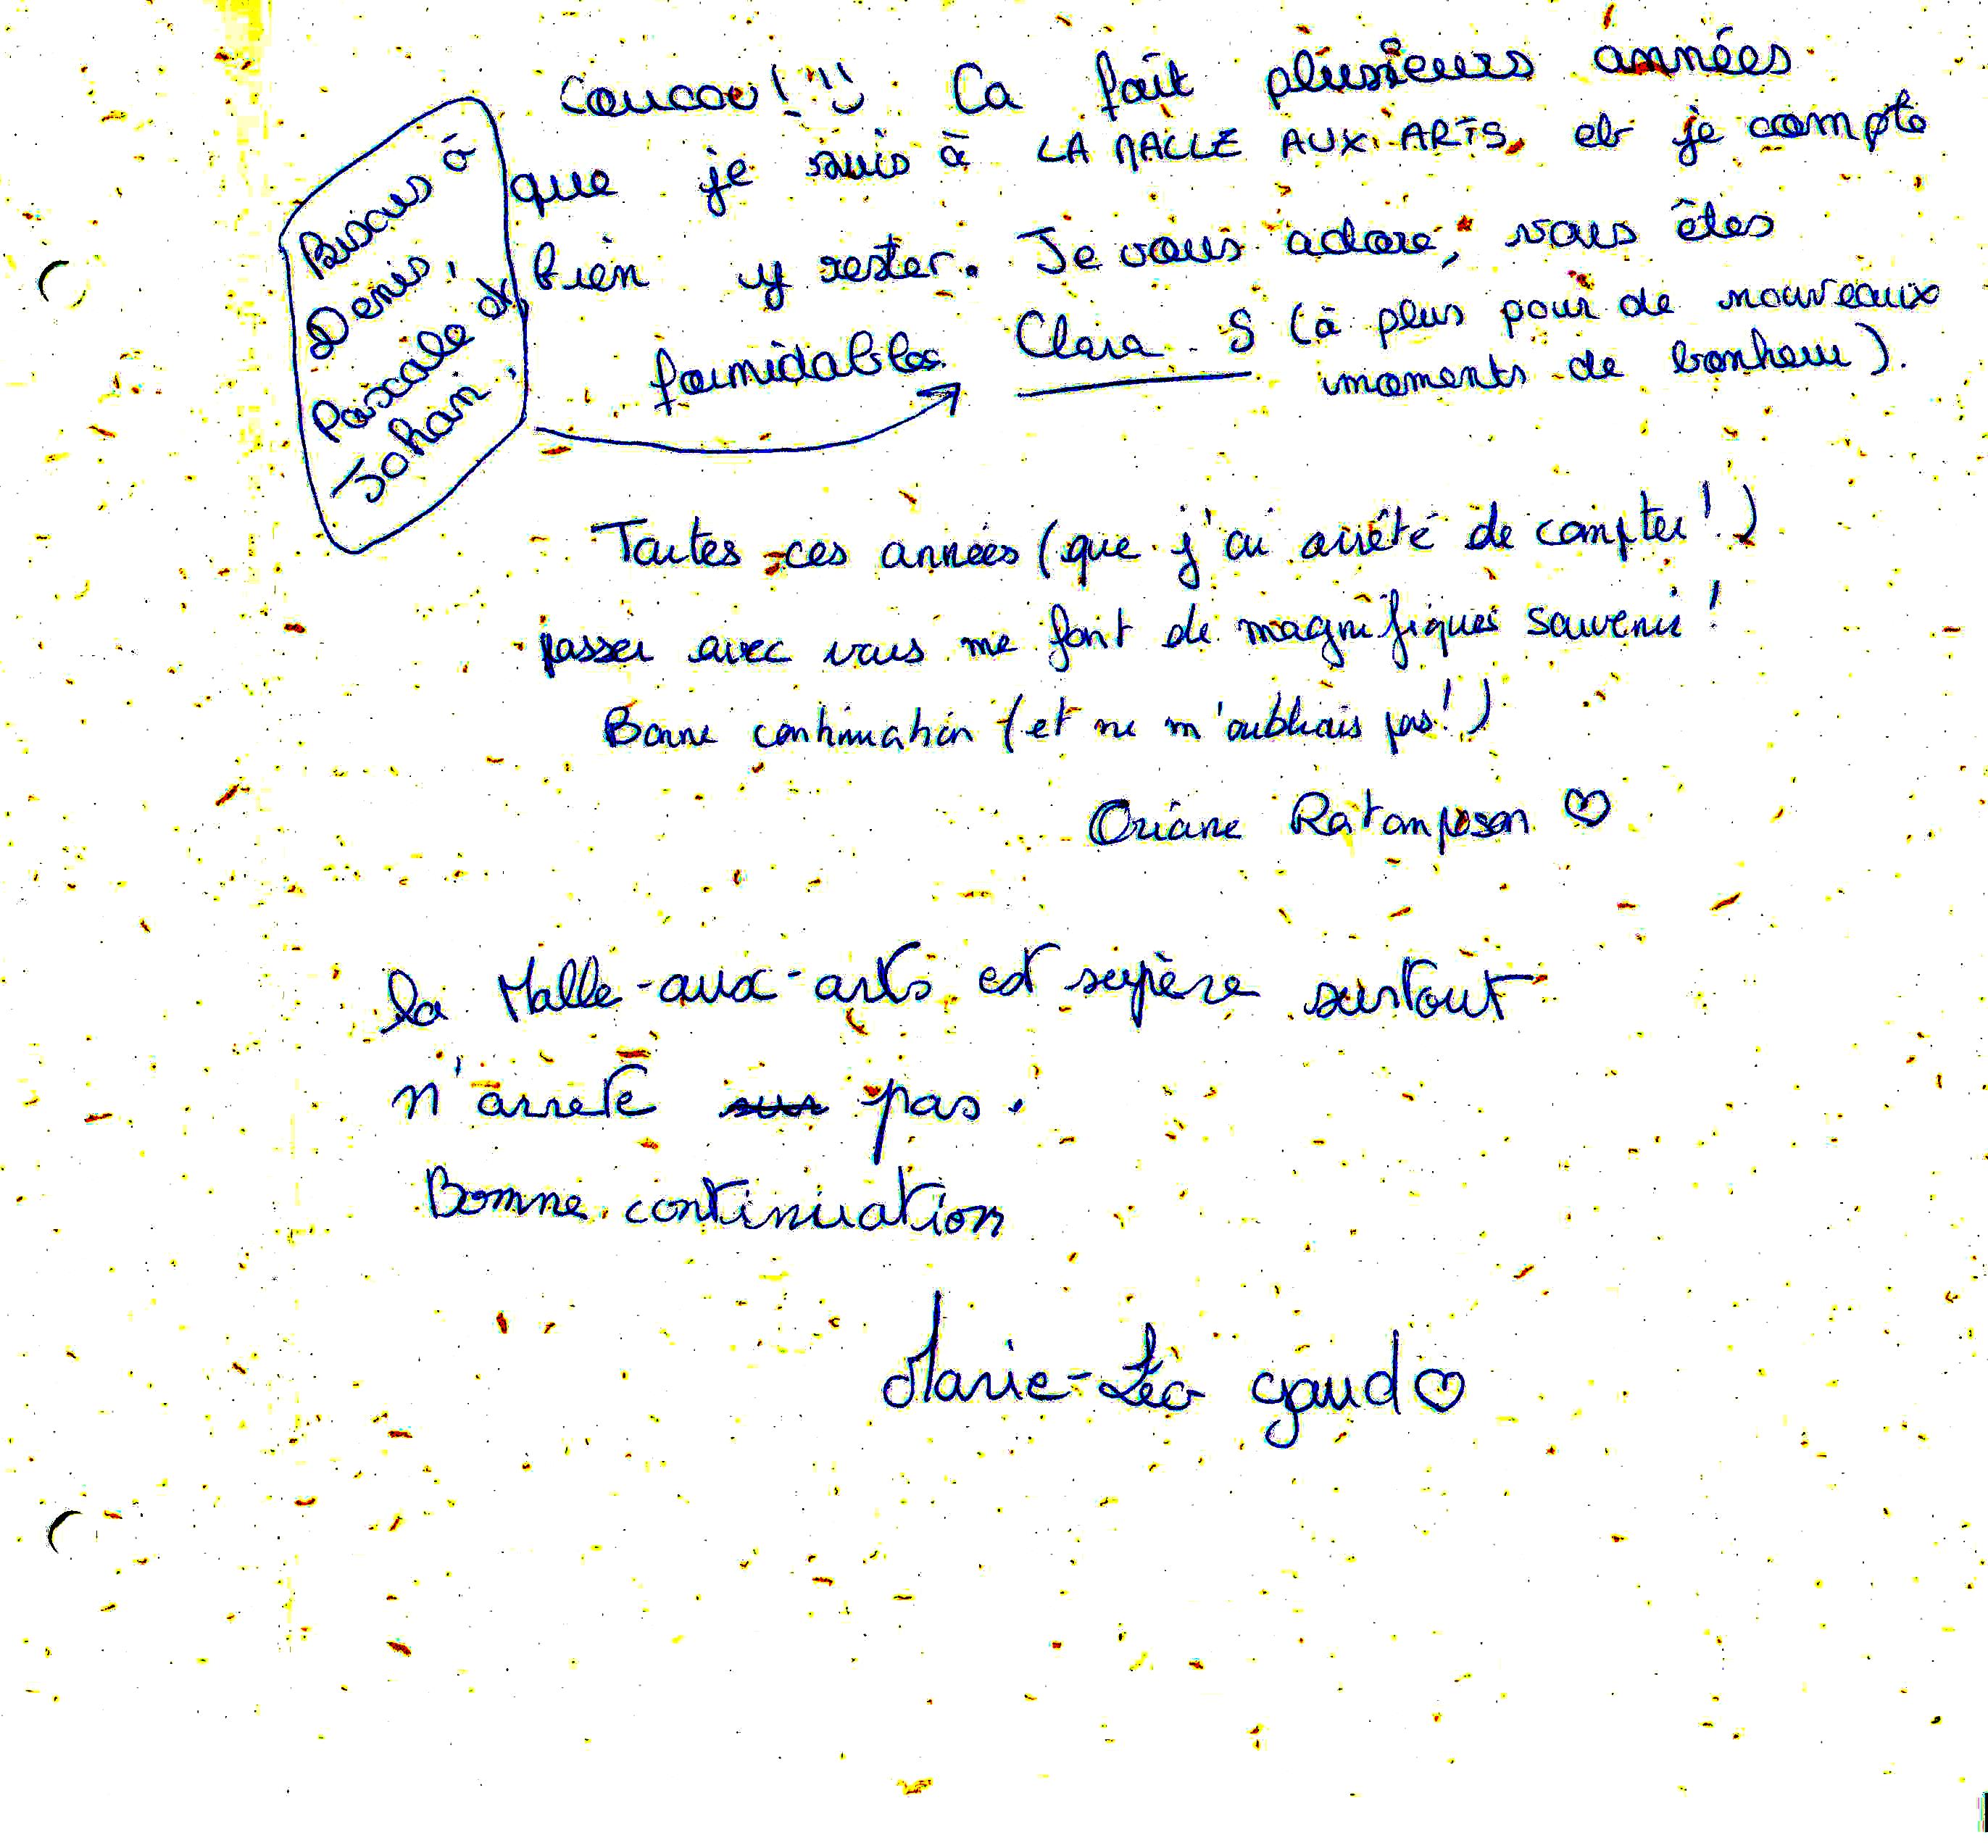 Coucou ! Ca fait plusieurs années
que je suis à LA MALLE AUX ARTS, et je compte
bien y rester. Je vous adore, vous êtes
formidables Clara. S (à plus pour de nouveaux
moments de bonheur).
Bisous à
Denis,
Pascale et
Johan,
Toutes ces années (que j'ai arrêté de compter !)
passer avec vous me font de magnifiques souvenir !
Bonne continuation (et ne m'oubliais pas !)
Oriane
la Malle-aux-arts est supère surtout
n'arrete pas.
Bonne continuation
Marie-Léo gaud